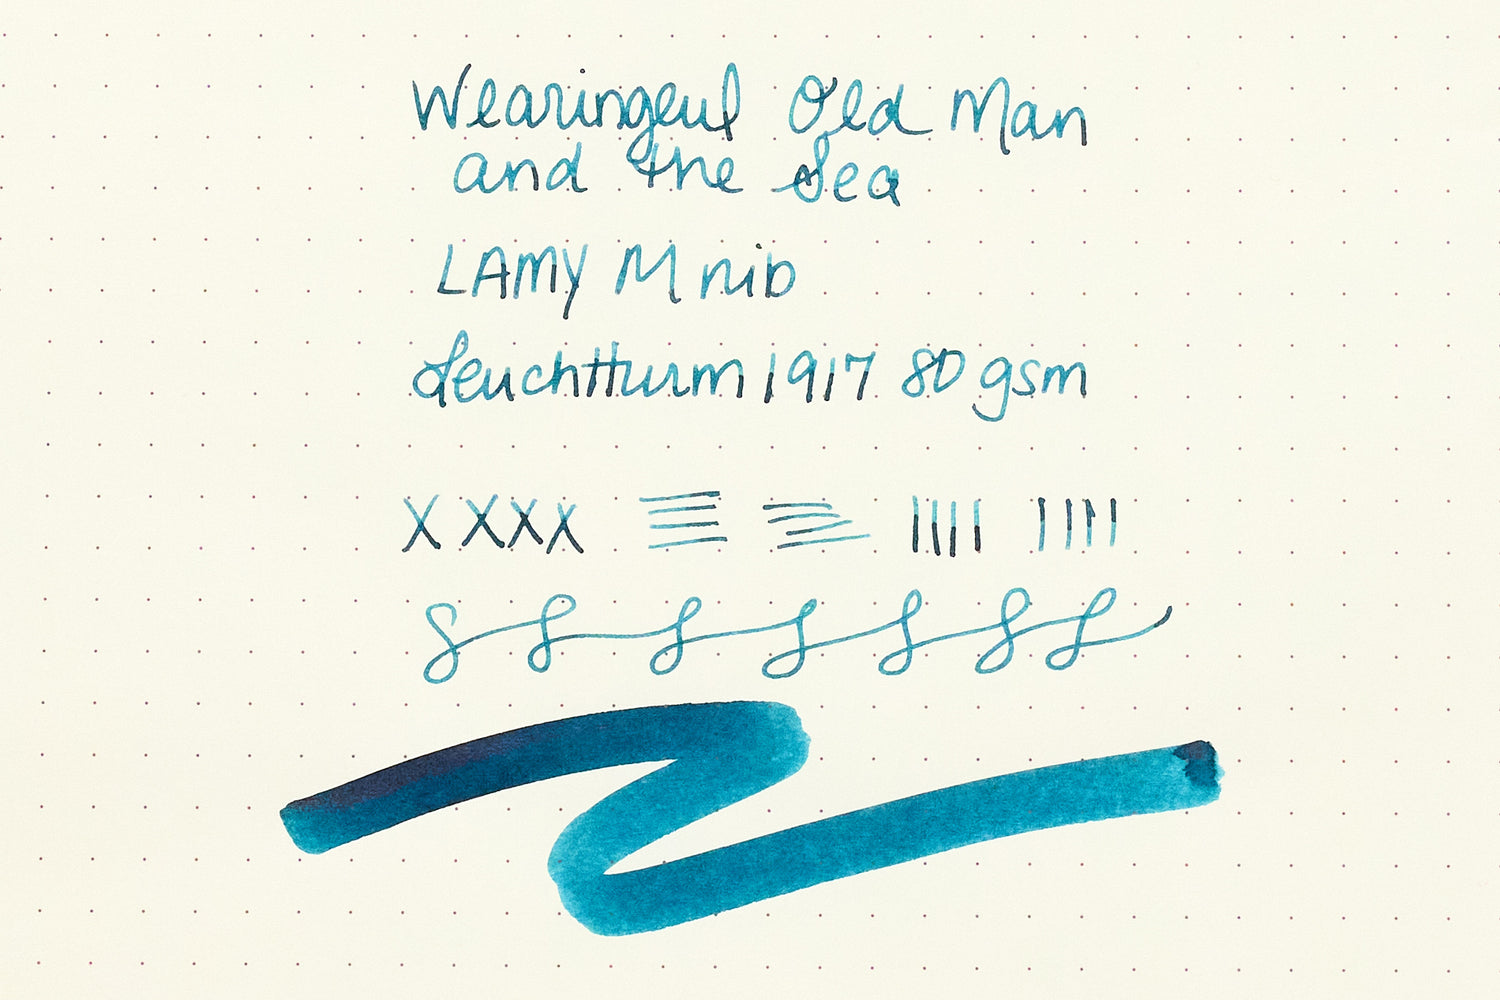 Wearingeul Old Man
and the Sea
LAMY M nib
Leuchtturm 1917 80 gsm
X X X X